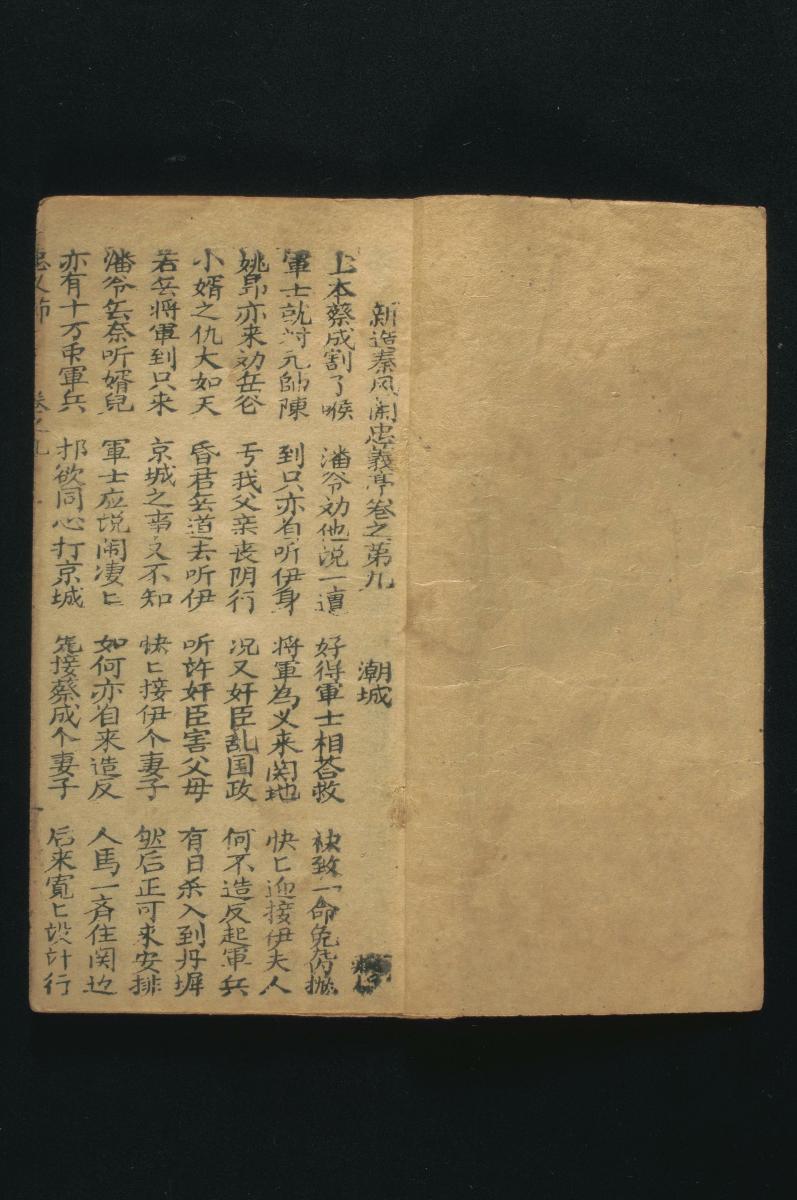 新造秦风闹忠義亭卷之第九 潮城
上本蔡成割了喉 潘爷劝他说一遭 好得軍士相荅救 袂致一命免傍抛
軍士就对元帥陳 到只亦有听伊身 将軍為义来関地 快匕迎接伊夫人
姚昴亦来劝岳爷 亏我父亲丧阴行 况又奸臣乱国政 何不造反起軍兵
小婿之仇大如天 昏君無道去听伊 听許奸臣害父母 有日杀入到丹墀
若無将軍到只来 京城之事又不知 快匕接伊个妻子 然后正可来安排
潘爷無奈听婿兒 軍士应说闹凄匕 如何亦有来造反 人馬一斉住関边
亦有十万中軍兵 邦欲同心打京城 先接蔡成个妻子 后来寬匕設计行
忠义節 卷之九